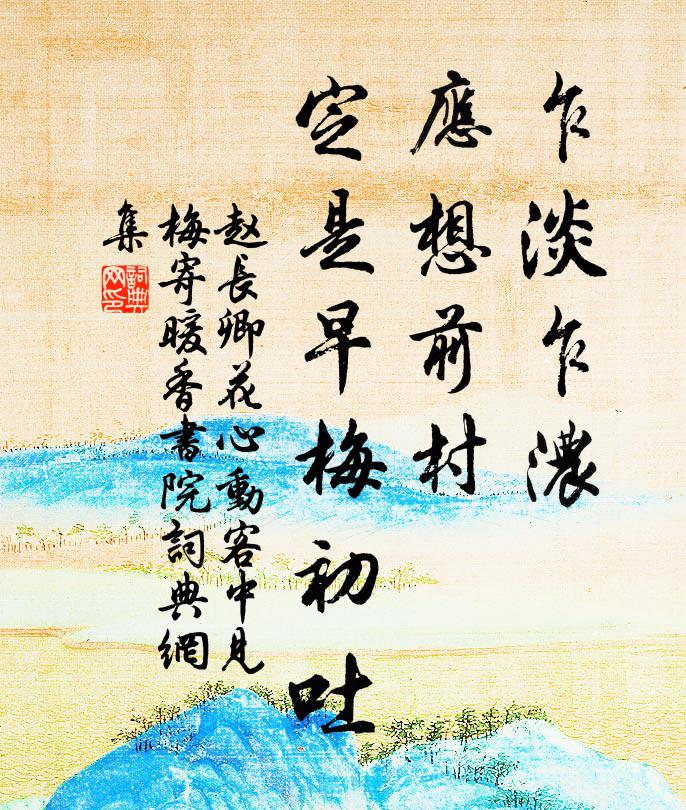 乍淡乍濃
應想前村
定是早梅初吐
赵長卿花心動客中見
梅寄暖香書院詞典網
集
詞典
网印